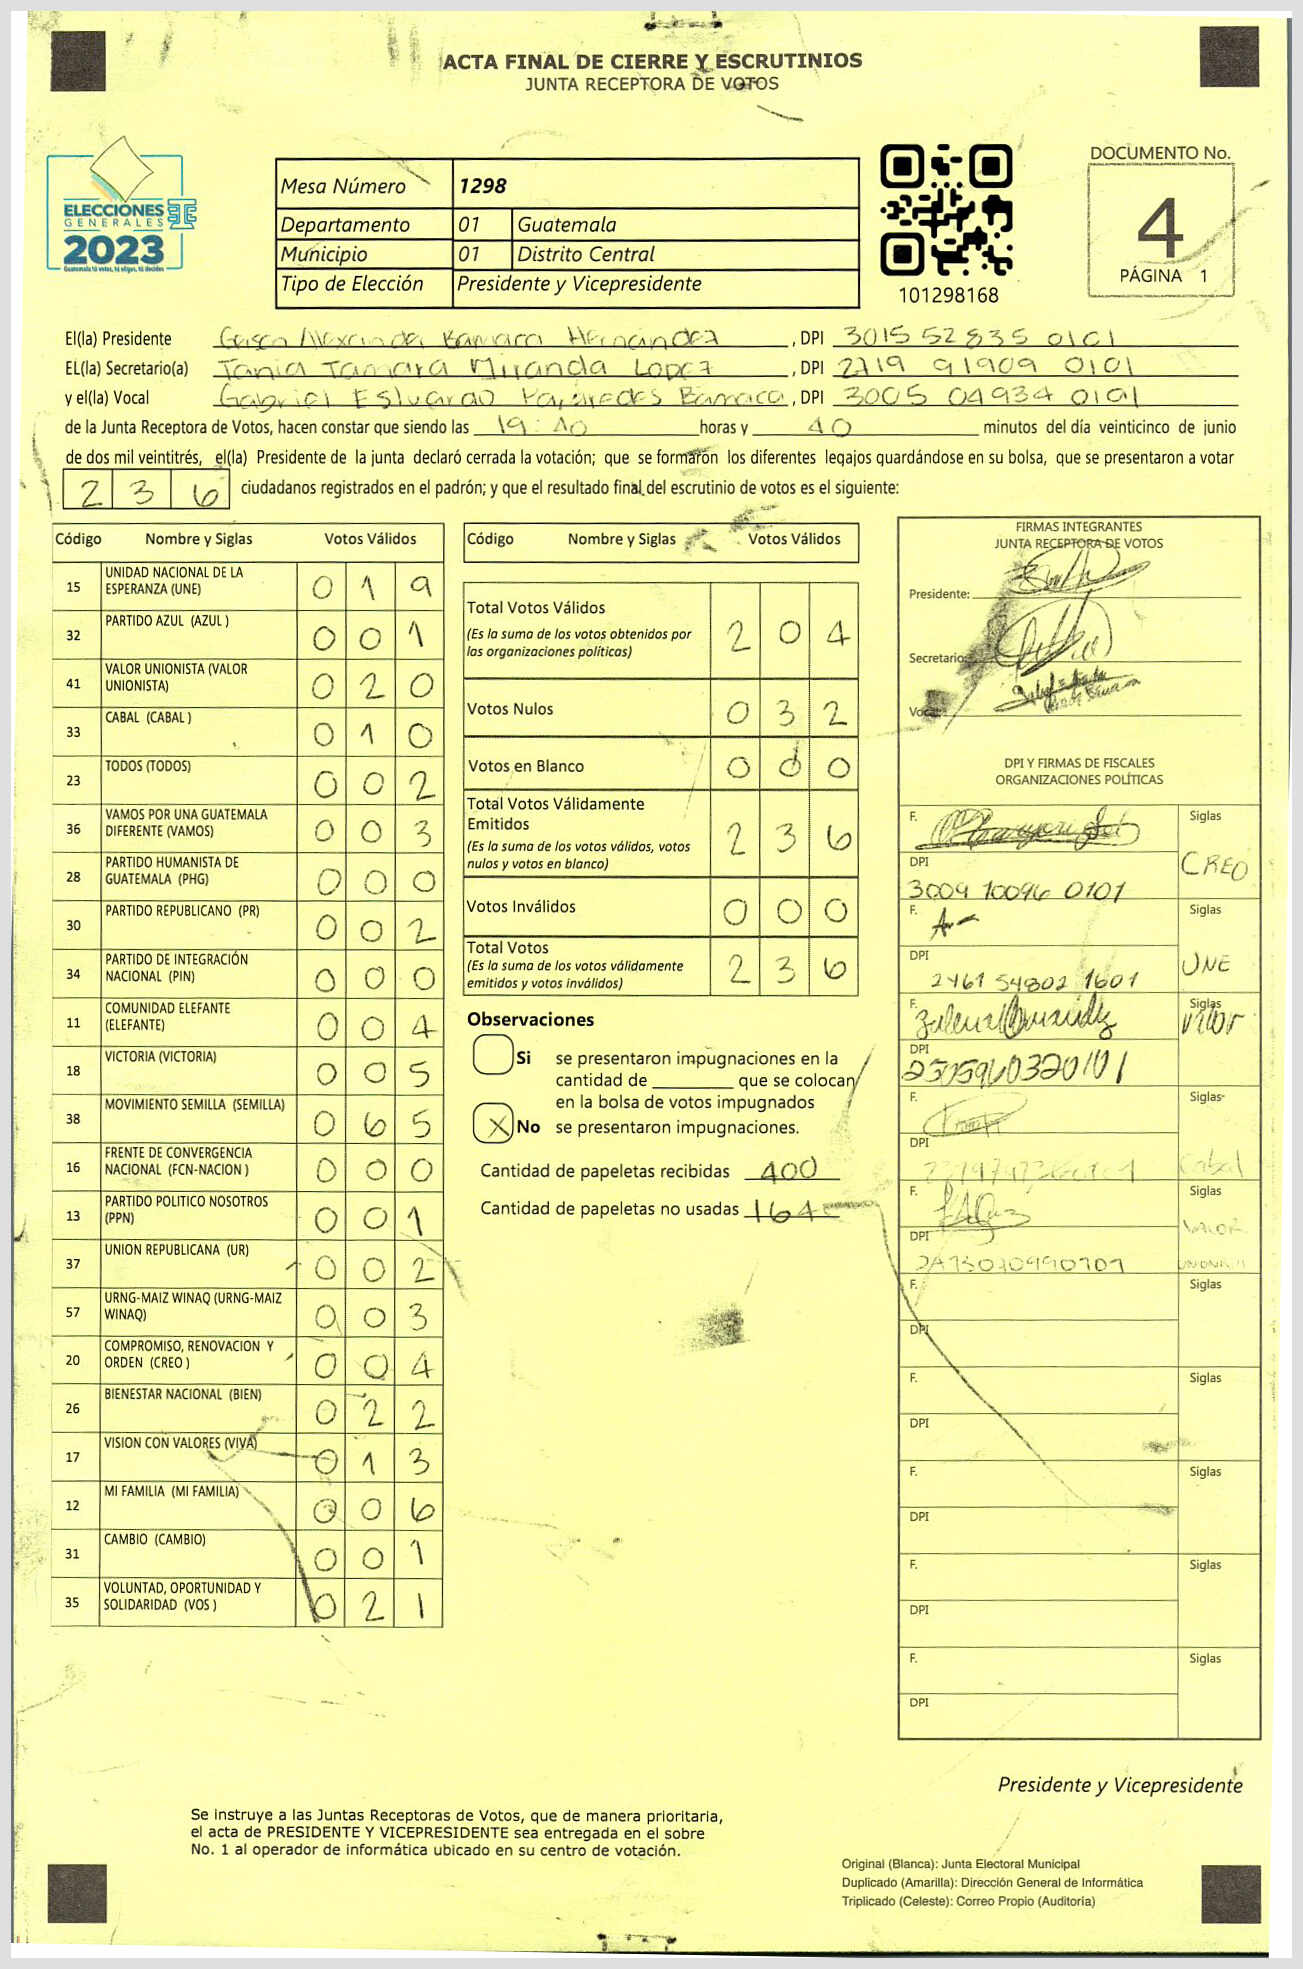 ACTA FINAL DE CIERRE Y ESCRUTINIOS
JUNTA RECEPTORA DE VOTOS
ELECCIONES
GENERALES
2023
Guatemala tú votas, tú eliges, tú decides
Mesa Número 1298
Departamento 01 Guatemala
Municipio 01 Distrito Central
Tipo de Elección Presidente y Vicepresidente
101298168
DOCUMENTO No.
4
PÁGINA 1
El(la) Presidente Hernández, DPI 3015 52835 0101
EL(la) Secretario(a) Tania Tamara Miranda Lopez, DPI 2719 91909 0101
y el(la) Vocal Gabriel Estuardo Barraca, DPI 3005 04934 0101
de la Junta Receptora de Votos, hacen constar que siendo las 19:40 horas y 40 minutos del día veinticinco de junio
de dos mil veintitrés, el(la) Presidente de la junta declaró cerrada la votación; que se formaron los diferentes legajos quardándose en su bolsa, que se presentaron a votar
236 ciudadanos registrados en el padrón; y que el resultado final del escrutinio de votos es el siguiente:
Código Nombre y Siglas Votos Válidos
15 UNIDAD NACIONAL DE LA ESPERANZA (UNE) 0 1 9
32 PARTIDO AZUL (AZUL ) 0 0 1
41 VALOR UNIONISTA (VALOR UNIONISTA) 0 2 0
33 CABAL (CABAL ) 0 1 0
23 TODOS (TODOS) 0 0 2
36 VAMOS POR UNA GUATEMALA DIFERENTE (VAMOS) 0 0 3
28 PARTIDO HUMANISTA DE GUATEMALA (PHG) 0 0 0
30 PARTIDO REPUBLICANO (PR) 0 0 2
34 PARTIDO DE INTEGRACIÓN NACIONAL (PIN) 0 0 0
11 COMUNIDAD ELEFANTE (ELEFANTE) 0 0 4
18 VICTORIA (VICTORIA) 0 0 5
38 MOVIMIENTO SEMILLA (SEMILLA) 0 6 5
16 FRENTE DE CONVERGENCIA NACIONAL (FCN-NACION ) 0 0 0
13 PARTIDO POLITICO NOSOTROS (PPN) 0 0 1
37 UNION REPUBLICANA (UR) 0 0 2
57 URNG-MAIZ WINAQ (URNG-MAIZ WINAQ) 0 0 3
20 COMPROMISO, RENOVACION Y ORDEN (CREO ) 0 0 4
26 BIENESTAR NACIONAL (BIEN) 0 2 2
17 VISION CON VALORES (VIVA) 0 1 3
12 MI FAMILIA (MI FAMILIA) 0 0 6
31 CAMBIO (CAMBIO) 0 0 1
35 VOLUNTAD, OPORTUNIDAD Y SOLIDARIDAD (VOS ) 0 2 1
Código Nombre y Siglas Votos Válidos
Total Votos Válidos 2 0 4
(Es la suma de los votos obtenidos por
las organizaciones políticas)
Votos Nulos 0 3 2
Votos en Blanco 0 0 0
Total Votos Válidamente
Emitidos 2 3 6
(Es la suma de los votos válidos, votos
nulos y votos en blanco)
Votos Inválidos 0 0 0
Total Votos 2 3 6
(Es la suma de los votos válidamente
emitidos y votos inválidos)
Observaciones
Si se presentaron impugnaciones en la
cantidad de ________ que se colocan
en la bolsa de votos impugnados
X No se presentaron impugnaciones.
Cantidad de papeletas recibidas 400
Cantidad de papeletas no usadas 164
FIRMAS INTEGRANTES
JUNTA RECEPTORA DE VOTOS
Presidente:
Secretario:
Vocal:
DPI Y FIRMAS DE FISCALES
ORGANIZACIONES POLÍTICAS
F. Siglas
DPI CREO
3009 10096 0101
F. Siglas
DPI UNE
2461 54802 1601
F. Siglas
Valor
DPI
2305960320101
F. Siglas
DPI Cabal
F. Siglas
VALOR
DPI
F. Siglas
DPI
F. Siglas
DPI
F. Siglas
DPI
F. Siglas
DPI
F. Siglas
DPI
Presidente y Vicepresidente
Se instruye a las Juntas Receptoras de Votos, que de manera prioritaria,
el acta de PRESIDENTE Y VICEPRESIDENTE sea entregada en el sobre
No. 1 al operador de informática ubicado en su centro de votación.
Original (Blanca): Junta Electoral Municipal
Duplicado (Amarilla): Dirección General de Informática
Triplicado (Celeste): Correo Propio (Auditoría)